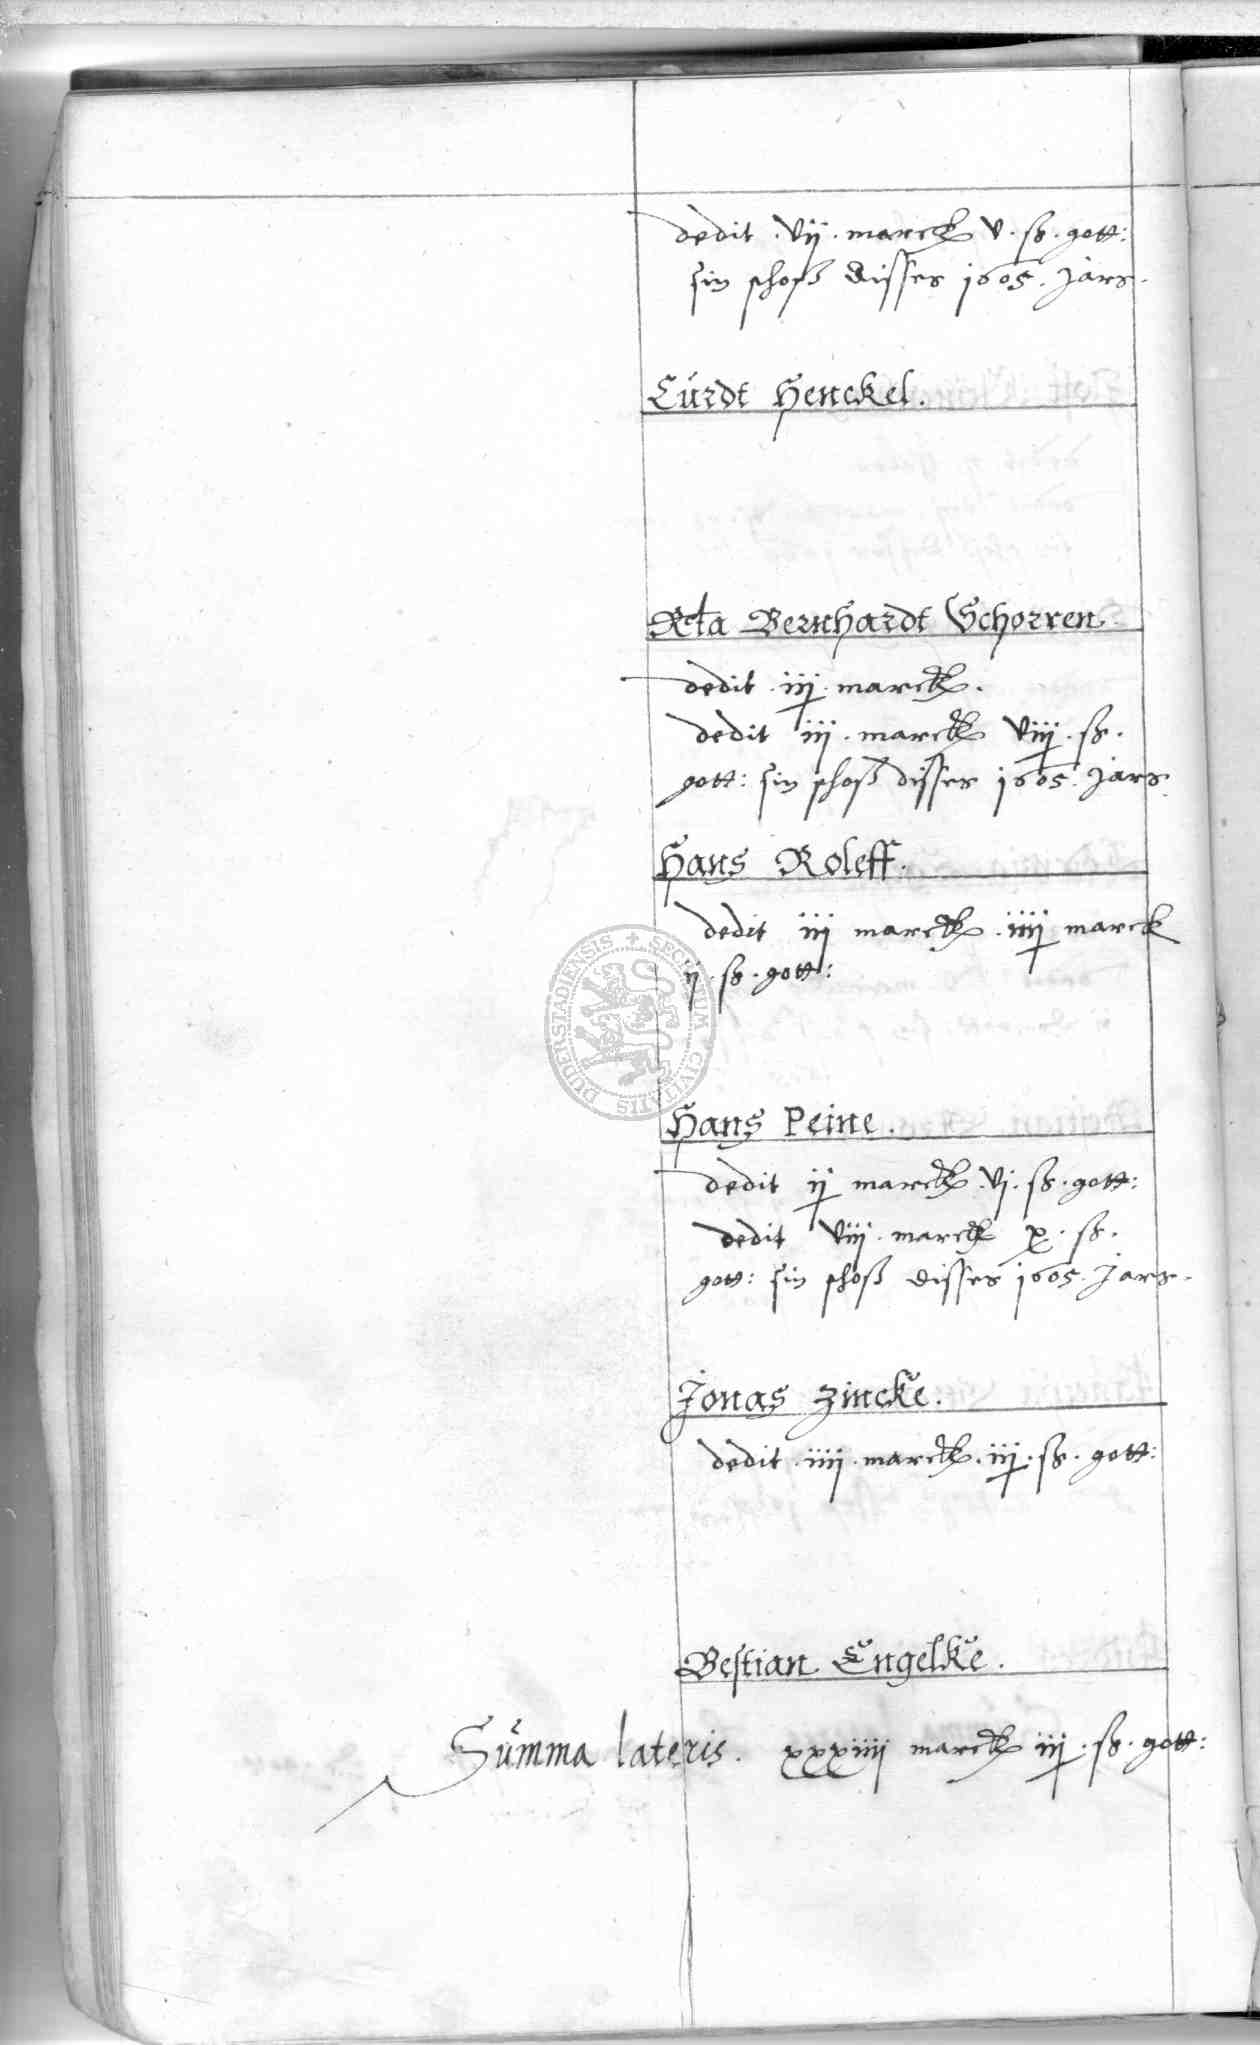 dedit . vij . marck v . ß . gott:
sin schoß disses 1605 . Jars .
Curdt Henckel .
Rta Bernhardt Schorren .
dedit . iij . marck .
dedit iij . marck viij . ß .
gott: sin schoß disses 1605 . Jars .
Hans Roleff .
dedit iij marck . iiij marck
ij . ß . gott:
Hans Peine .
dedit ij marck . vj . ß . gott:
dedit viij . marck x . ß .
gott: sin schoß disses 1605 . Jars .
Jonas Zincke .
dedit . iiij . marck . iij . ß . gott:
Bestian Engelke .
Summa lateris . xxxiiij marck iij . ß . gott:
SECRETUM CIVITATIS DUDERSTADIENSIS